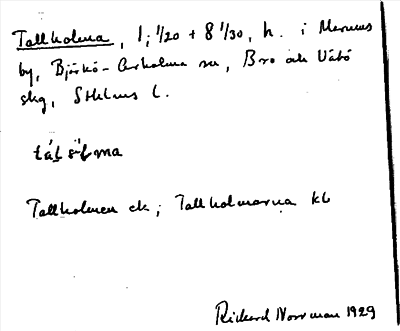 Tallholma, 1; 1/20 + 8 1/30, h. i Marums
by, Björkö-Arholma sn, Bro och Vätö
skg, Sthlms l.
Tallholmen ek; Tallholmarna kb
Richard Norrman 1929